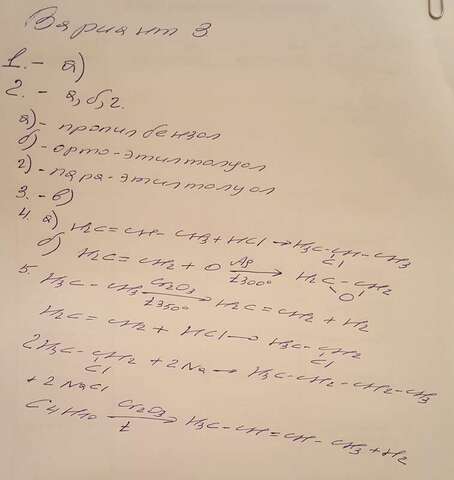 Вариант 3
1. - а)
2. - а, б, г.
а) - пропилбензол
б) - орто-этилтолуол
г) - пара-этилтолуол
3. - в)
4. а) H2C=CH-CH3+HCl→H3C-CH-CH3
Cl
б) H2C=CH2+O Ag t300° → H2C-CH2
O
5. H3C-CH3 Cr2O3 t350° → H2C=CH2+H2
H2C=CH2+HCl→H3C-CH2
Cl
2H3C-CH2+2Na→H3C-CH2-CH2-CH3
Cl
+2NaCl
C4H10 Cr2O3 t → H3C-CH=CH-CH3+H2